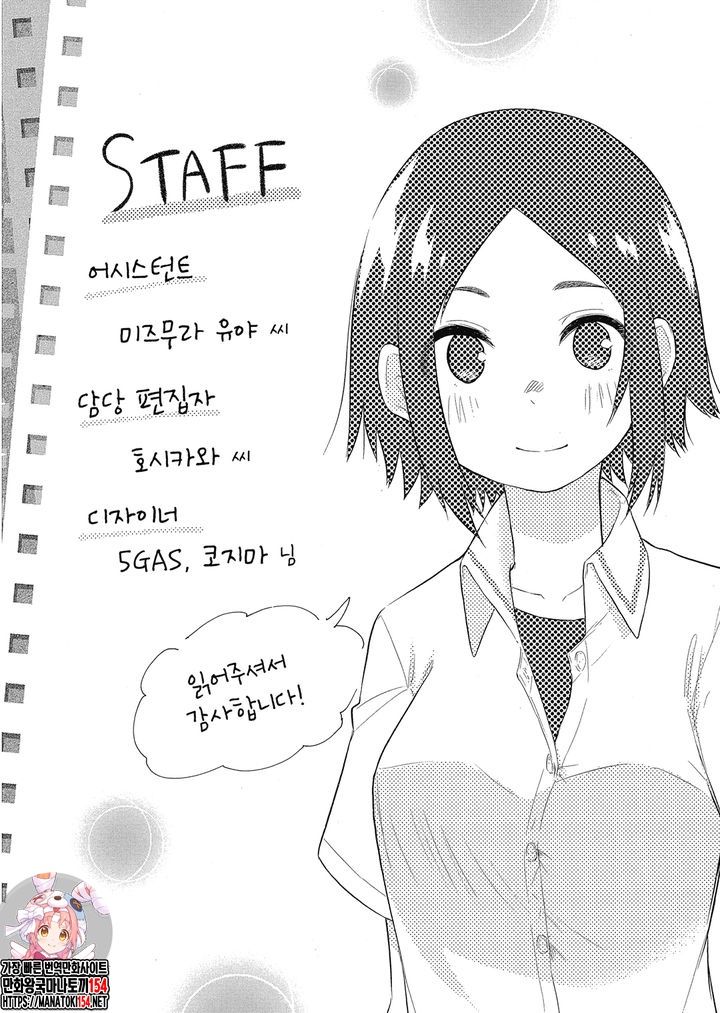 STAFF
어시스턴트
미즈무라 유야 씨
담당 편집자
호시카와 씨
디자이너
5GAS, 코지마 님
읽어주셔서
감사합니다!
가장 빠른 번역만화사이트
만화왕국마나토끼154
HTTPS://MANATOKI154.NET